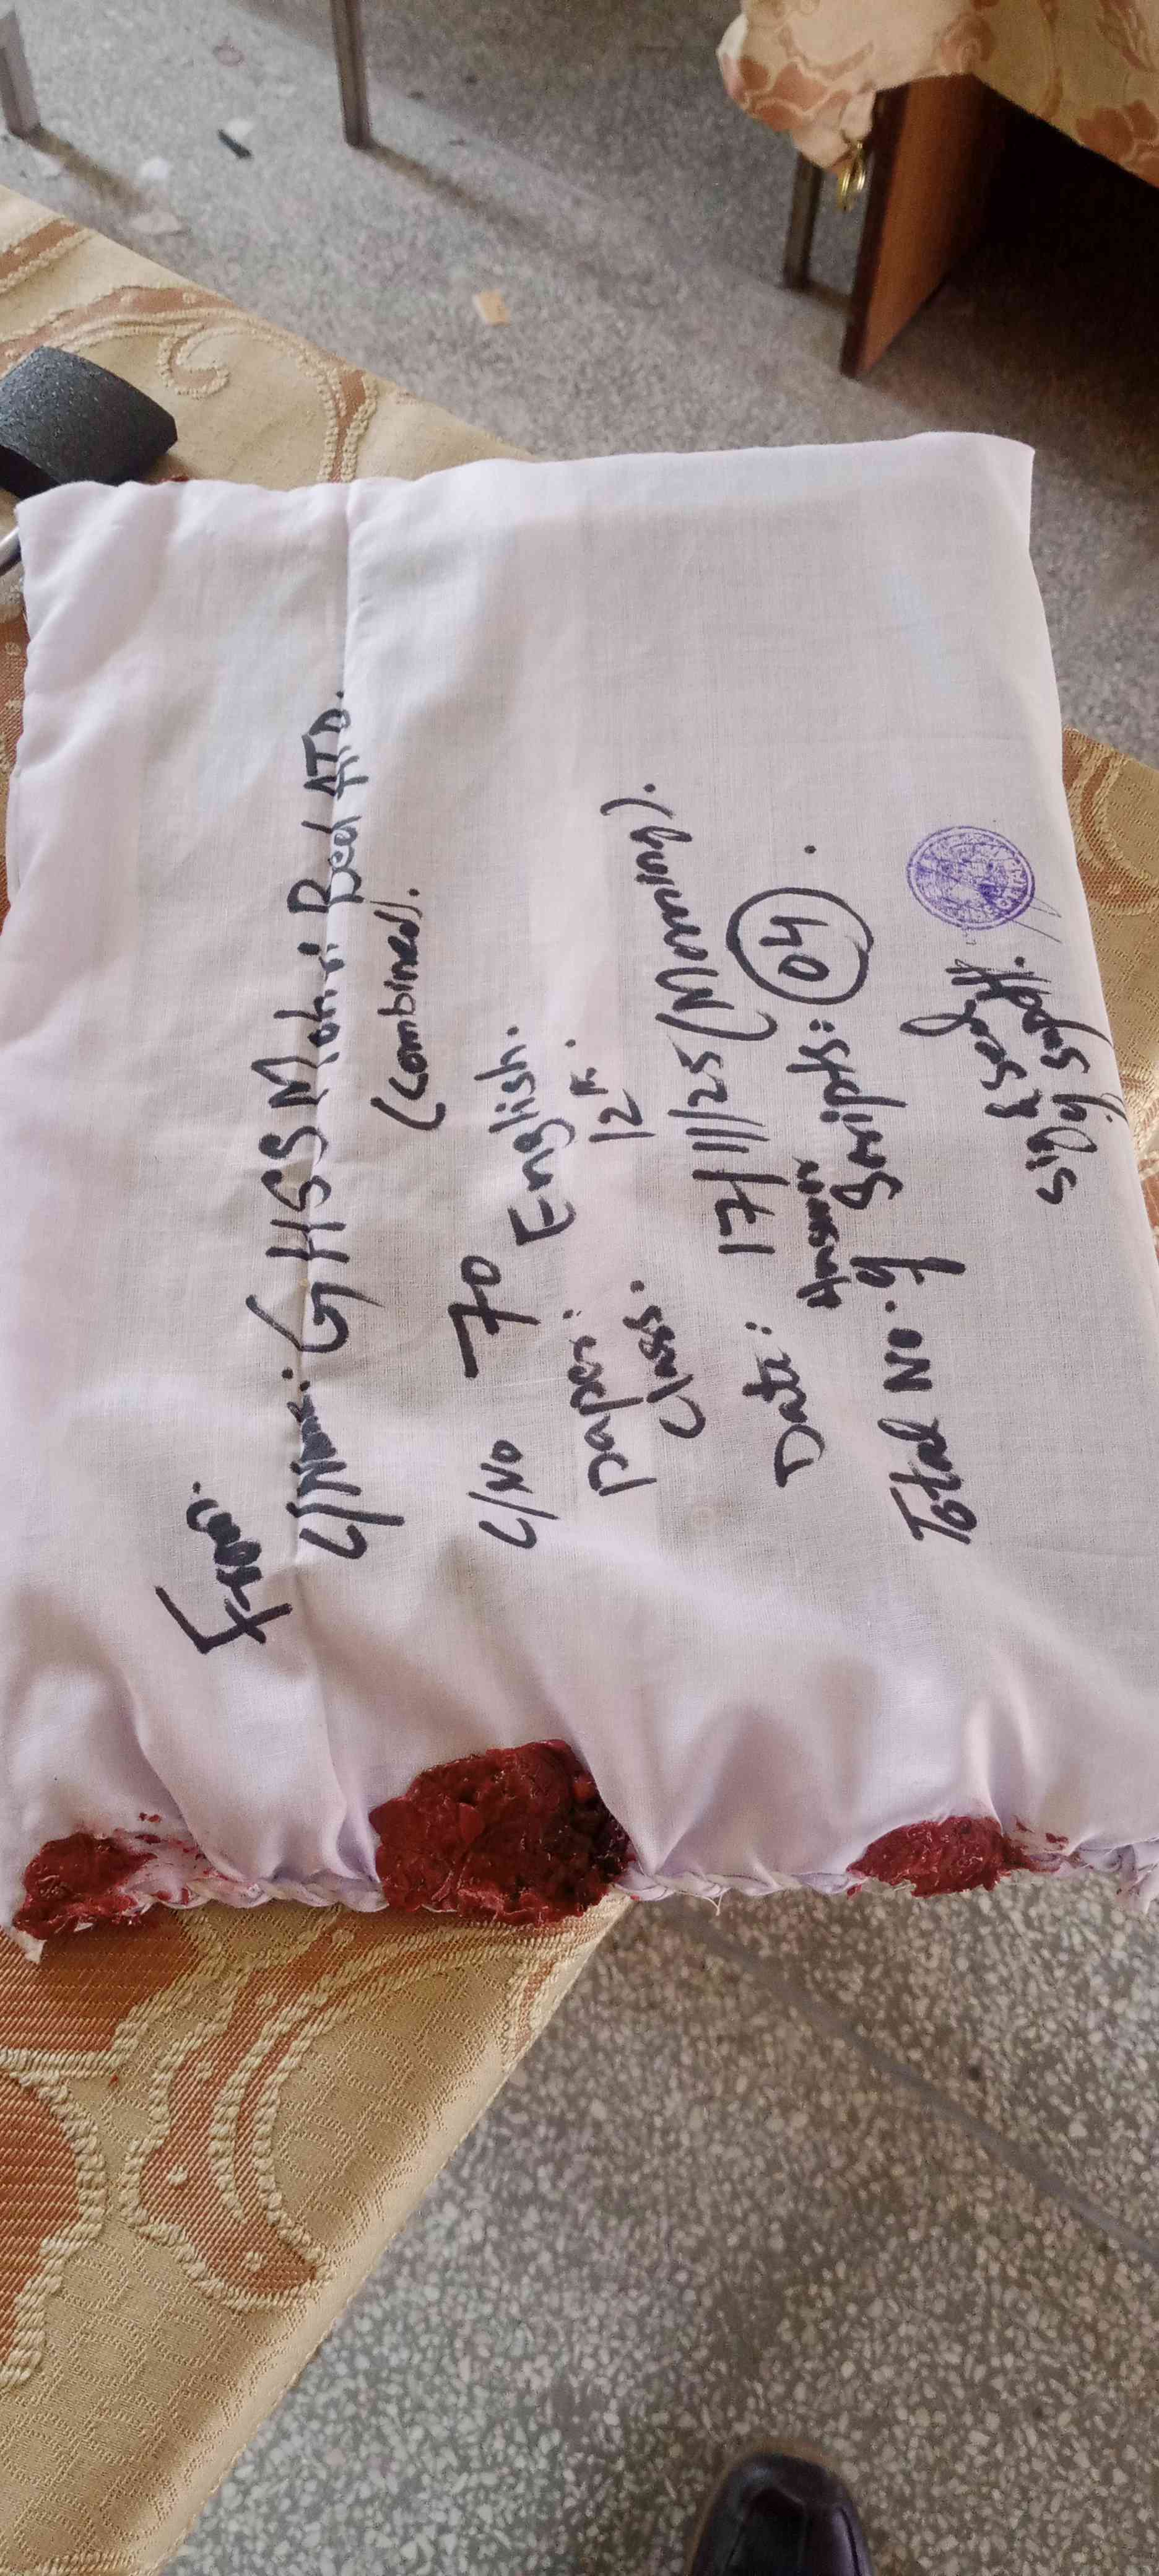 From:
C/Name: GHSS Mohri Bed ATD.
(Combined).
C/No 70
Paper: English.
Class: 12th.
Date: 17/11/25 (Morning).
Answer
Total No. of Scripts: 40.
Sig & Seal
of Supdtt.